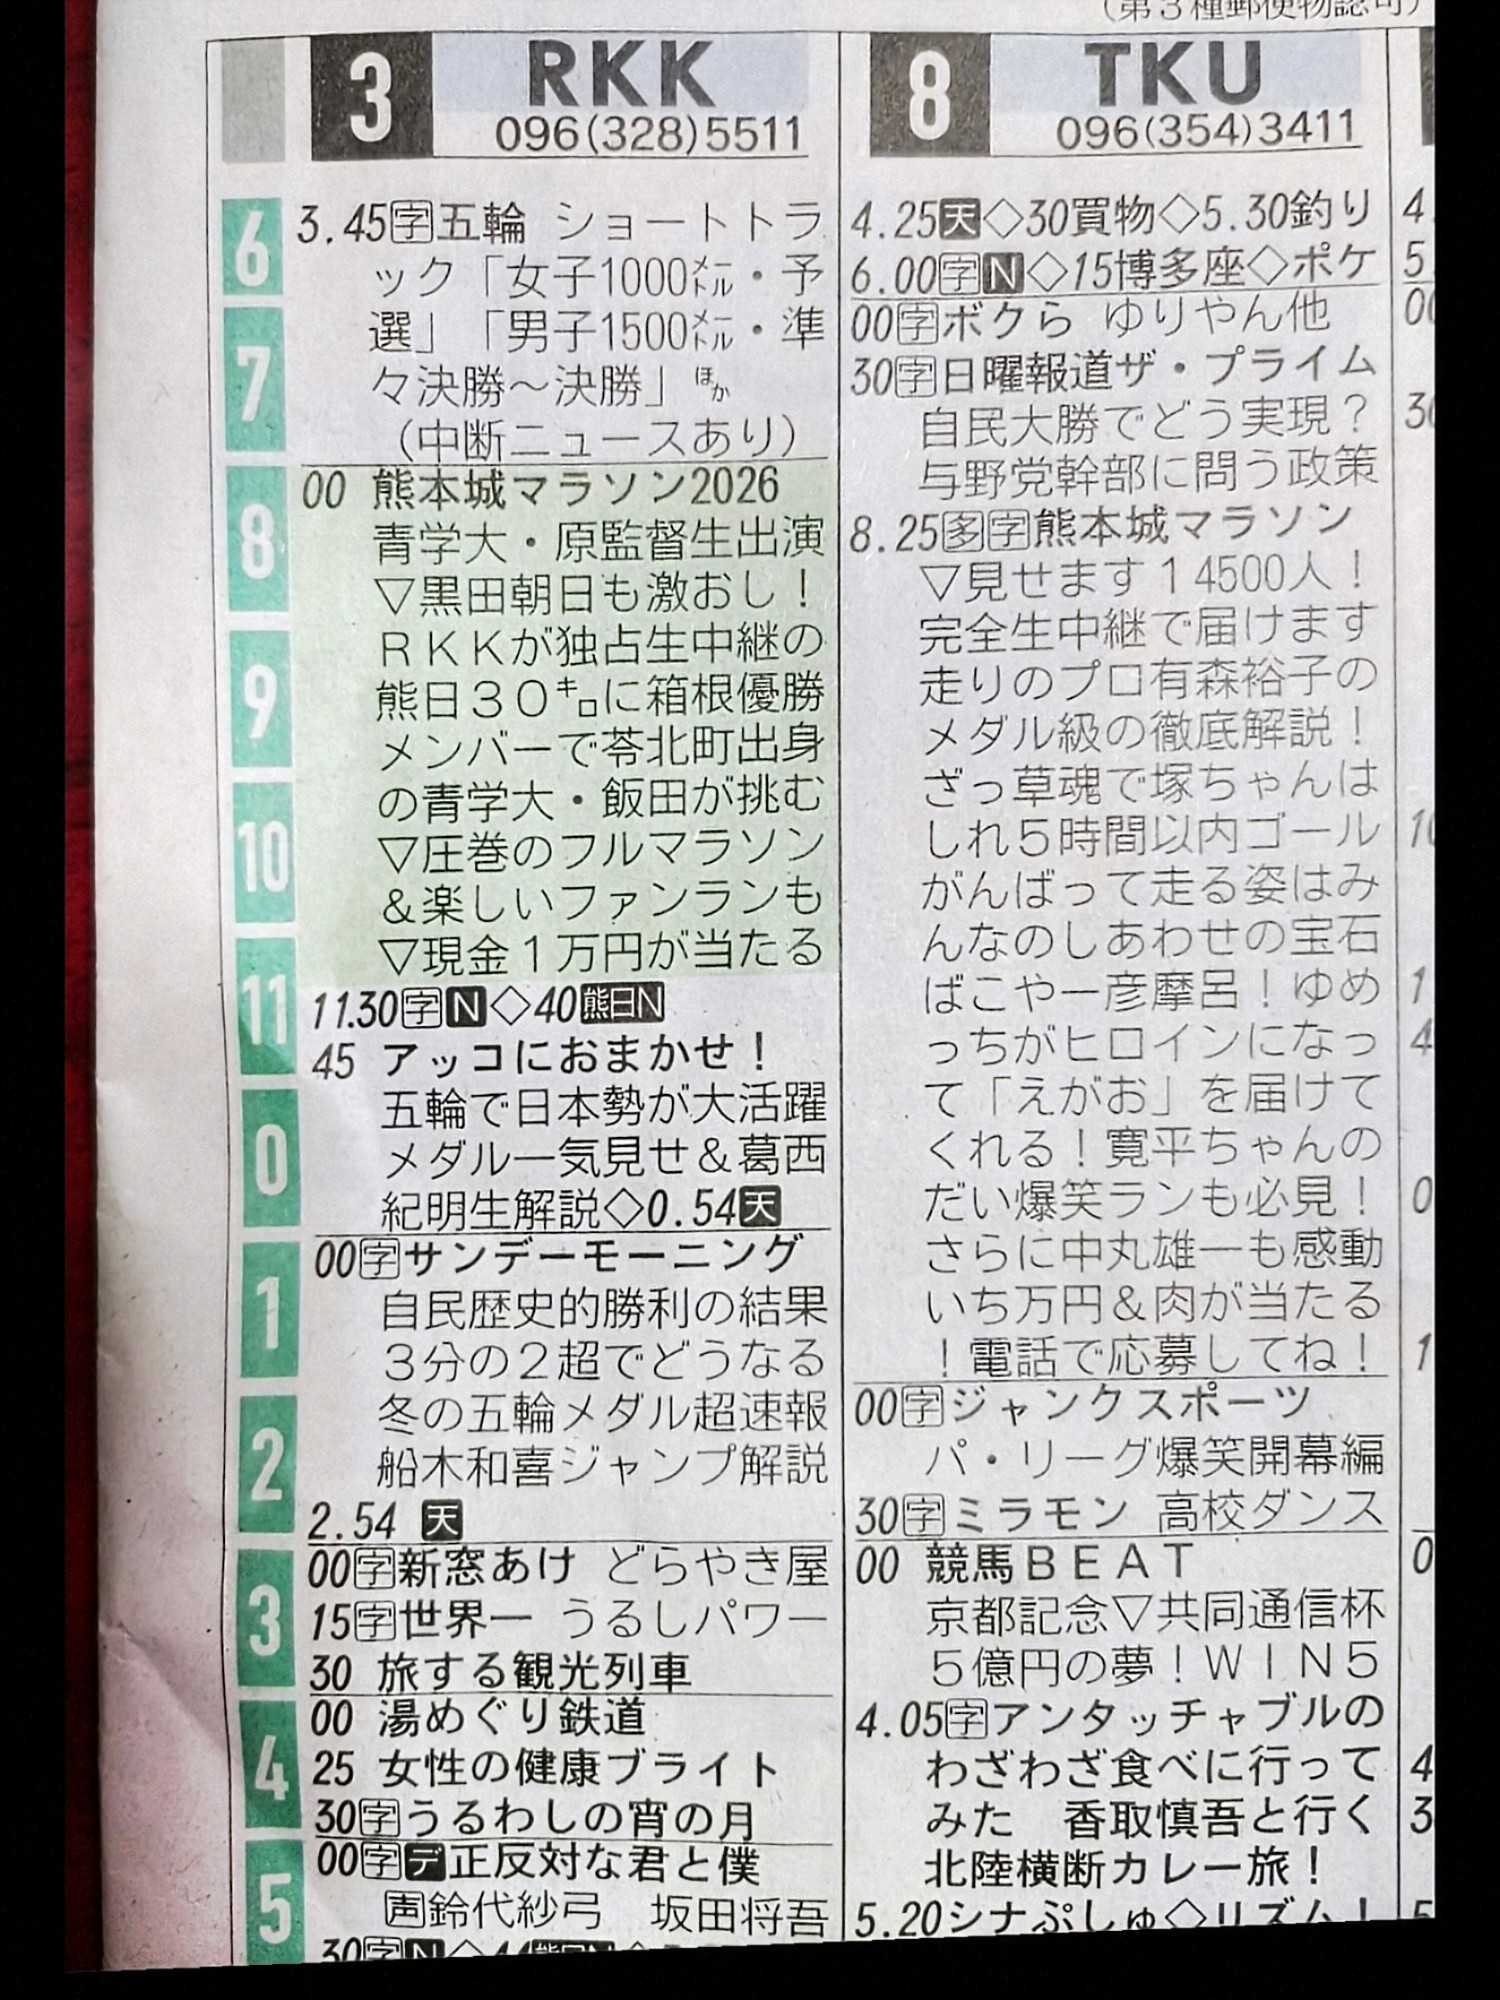 (第3種郵便物認可)
3 RKK
096(328)5511
6
7
8
9
10
11
0
1
2
3
4
5
3.45字五輪 ショートトラ
ック「女子1000メートル・予
選」「男子1500メートル・準
々決勝〜決勝」ほか
(中断ニュースあり)
00 熊本城マラソン2026
青学大・原監督生出演
▽黒田朝日も激おし!
RKKが独占生中継の
熊日30キロに箱根優勝
メンバーで苓北町出身
の青学大・飯田が挑む
▽圧巻のフルマラソン
&楽しいファンランも
▽現金1万円が当たる
11.30字N◇40熊日N
45 アッコにおまかせ!
五輪で日本勢が大活躍
メダル一気見せ&葛西
紀明生解説◇0.54天
00字サンデーモーニング
自民歴史的勝利の結果
3分の2超でどうなる
冬の五輪メダル超速報
船木和喜ジャンプ解説
2.54 天
00字新窓あけ どらやき屋
15字世界一 うるしパワー
30 旅する観光列車
00 湯めぐり鉄道
25 女性の健康ブライト
30字うるわしの宵の月
00字デ正反対な君と僕
声鈴代紗弓 坂田将吾
30字N◇44熊日N◇
8 TKU
096(354)3411
4.25天◇30買物◇5.30釣り
6.00字N◇15博多座◇ポケ
00字ボクら ゆりやん他
30字日曜報道ザ・プライム
自民大勝でどう実現?
与野党幹部に問う政策
8.25多字熊本城マラソン
▽見せます14500人!
完全生中継で届けます
走りのプロ有森裕子の
メダル級の徹底解説!
ざっ草魂で塚ちゃんは
しれ5時間以内ゴール
がんばって走る姿はみ
んなのしあわせの宝石
ばこやー彦摩呂!ゆめ
っちがヒロインになっ
て「えがお」を届けて
くれる!寛平ちゃんの
だい爆笑ランも必見!
さらに中丸雄一も感動
いち万円&肉が当たる
!電話で応募してね!
00字ジャンクスポーツ
パ・リーグ爆笑開幕編
30字ミラモン 高校ダンス
00 競馬BEAT
京都記念▽共同通信杯
5億円の夢!WIN5
4.05字アンタッチャブルの
わざわざ食べに行って
みた 香取慎吾と行く
北陸横断カレー旅!
5.20シナぷしゅ◇リズム!